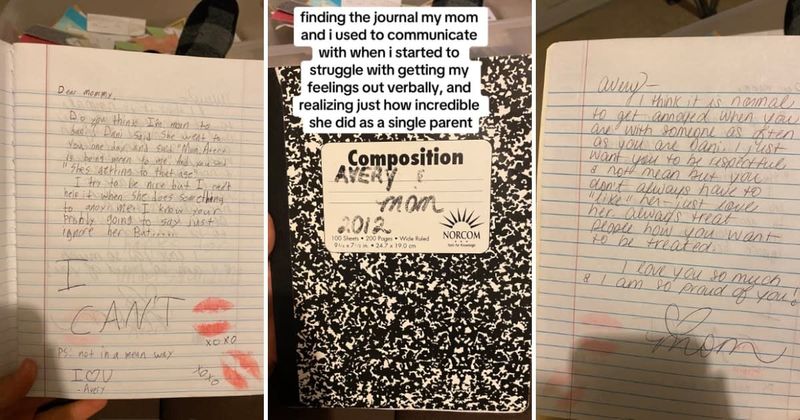 Dear mommy,
Do you think I'm mean to
Dani? Dani said she went to
you one day and said "Mom, Avery
is being mean to me. And you said
"She's getting to that age".
I try to be nice but I can't
help it when she does something
to anoy me! I know your
probly going to say just
ignore her But......
I
CAN'T
xoxo
P.S. not in a mean way
I ♡ U
xoxo
-Avery
finding the journal my mom
and i used to communicate
with when i started to
struggle with getting my
feelings out verbally, and
realizing just how incredible
she did as a single parent
Composition
AVERY &
mom
2012
100 Sheets • 200 Pages • Wide Ruled
9¾ x 7½ in. • 24.7 x 19.0 cm
NORCOM
Avery-
I think it is normal
to get annoyed when you
are with someone as often
as you are Dani. I just
want you to be respectful
& not mean but you
don't always have to
"like" her - just love
her. Always treat
people how you want
to be treated.
I love you so much
& I am so proud of you!
♡ Mom